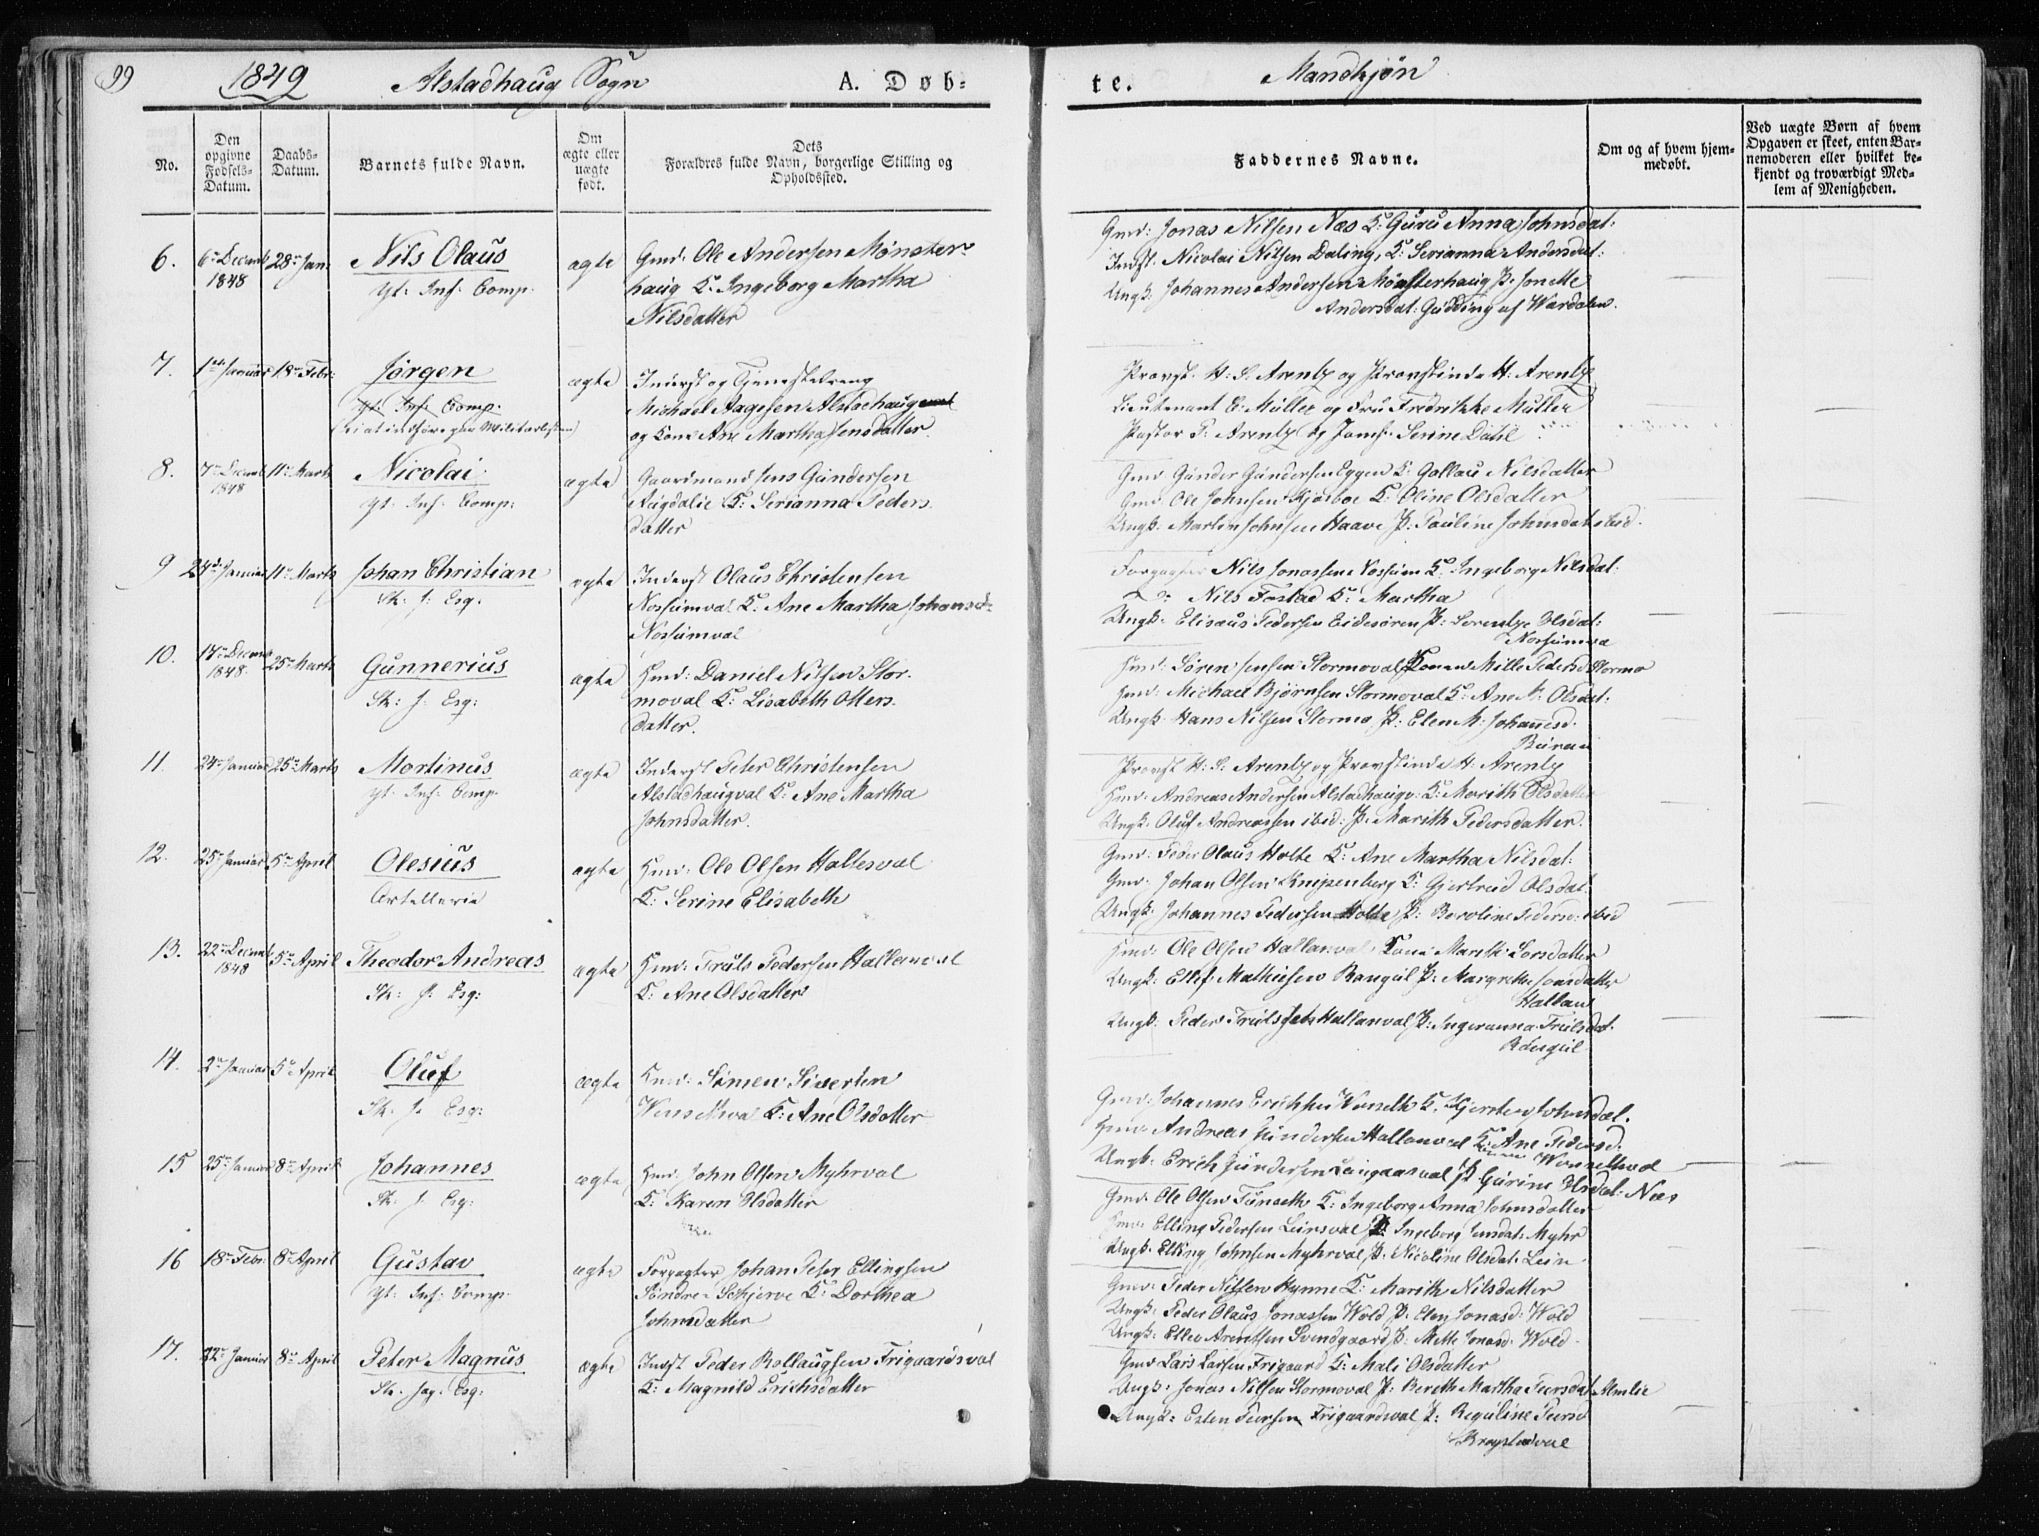 99
1849
Alstadhaug Sogn
A. Døb-
te.
Mandkjøn
No.
Den opgivne Fødsels-Datum.
Daabs-Datum.
Barnets fulde Navn.
Om ægte eller uægte født.
Dets Forældres fulde Navn, borgerlige Stilling og Opholdssted.
Faddernes Navne.
Om og af hvem hjem-medøbt.
Ved uægte Børn af hvem Opgaven er skeet, enten Bar-nemoderen eller hvilket be-kjendt og troværdigt Med-lem af Menigheden.
6. 6te Decemb 1848 28de Jan: Nils Olaus ægte Gmd: Ole Andersen Mønster-
Yt: Inf: Comp. haug K: Ingeborg Martha
Nilsdatter
Gmd: Jonas Nilsen Næs K: Guru Anna Johnsdat:
Indst. Nicolai Nilsen Daling, K: Serianna Andersdat:
Ungk: Johannes Andersen Mønsterhaug P: Jonette
Andersdat: Gudding af Wærdalen.
7. 1ste Januar 18de Febr: Jørgen ægte Inderst og Tjenestedreng
Yt: Inf: Comp. Michael Aagesen Alstadhaug
og Kone Ane Martha Jensdatter
Provst H: S: Arentz og Provstinde H: Arentz
Lieutenant C: Müller og Fru Fredrikke Müller
Pastor F: Arentz og Jomf: Serine Dahl
8. 7de Decemb 1848 11te Marts Nicolai ægte Gaardmand Jens Gundersen
Yt: Inf: Comp: Augdalie K: Serianna Peders
datter
Gmd Gunder Gundersen Eggen K: Gollau Nilsdatter
Gmd Ole Johnsen K: Oline Olsdatter
Ungk: Martin Johnsen Haave P: Pauline Johnsdat ibid.
9 24de Januar 11te Marts Johan Christian ægte Inderst Olaus Christensen
Sk: J: Esq. Nossumval K: Ane Martha Johansd:
Nossumval
Forpagter Nils Jonassen Nossum K: Ingeborg Nilsdat:
Do Nils Fostad K: Martha
Ungk: Elisæus Pedersen Eidesøren P: Lorentze Olsdat:
10. 14de Decemb 1848. 25de Marts Gunnerius ægte Hmd: Daniel Nilsen Stor-
Sk: J: Esq: moval K: Lisabeth Otters
datter.
Hmd: Søren Jensen Stormoval Konen Mille Pedersd Stormo
Hmd: Michael Bjørnsen Stormoval K: Ane M: Olsdat:
Ungk: Hans Nilsen Stormo P: Elen M: Johannesd.
11. 24de Januar 25de Marts Mortinus ægte Inderst Peter Christensen
Yt: Inf: Comp. Alstadhaugval K: Ane Martha
Johnsdatter.
Provst H: S: Arentz og Provstinde H: Arentz
Hmd: Andreas Andersen Alstadhaugv: K: Marith Olsdatter
Ungk: Oluf Andreassen ibid: P: Marith Pedersdatter.
12. 25de Januar 5te April Olesius ægte Hmd: Ole Olsen Holtesval
Artelleria K: Serine Elisabeth
Gmd: Peder Olaus Holte K: Ane Martha Nilsdat:
Gmd: Johan Olsen Knipenberg K: Gjertrud Olsdat.
Ungk: Johannes Pedersen Holte P: Beroline Pedersd: ibid
13. 22de Decemb 1848 5te April Theodor Andreas ægte Hmd: Truls Pedersen Hallemval
Sk: J: Esq: K: Ane Olsdatter
Hmd: Ole Olsen Hallanval Kone Marith Larsdatter
Ungk: Ellef Mathiesen P: Margrethe Jonsdatter
Hallan
Ungk: Peder Trulssen Hallanval P: Ingeranna Trulsdat.
14. 2de Januar 5te April Oluf ægte Hmd: Simen Sivertsen
Sk: J: Esq: K: Ane Olsdatter
Gmd: Johannes Erichsen K: Kjersten Johnsdat.
Hmd: Andreas Gundersen Hallanval K: Ane Pedersd:
Ungk: Erich Gundersen P: Gurine Olsdat: Næs
15 25de Januar 8de April Johannes ægte Hmd: John Olsen Myhrval
Sk: J: Esq: K: Karen Olsdatter
Gmd: Ole Olsen Tuneth K: Ingeborg Anna Johnsdatter
Hmd: Elling Pedersen Leinsval P: Ingeborg Jensdat: Myhr
Ungk: Elling Johnsen Myhrval P: Nicoline Olsdat: Lein
16 18de Febr: 8de April Gustav ægte Forpagter Johan Peter Ellingsen
Yt: Inf: Comp. Søndre-Schjerve K: Dorthea
Johnsdatter
Gmd: Peder Nilsen Hynne K: Marith Nilsdatter
Ungk: Peder Olaus Jonassen Wold P: Elen Jonasd: Wold
Ungk: Ellev Arentsen Svendgaard P: Mette Jonasd: Wold
17. 22de Januar 8de April Peter Magnus ægte Indst Peder Rollaugsen Frigaardsval
Sk: Jæg: Esq: K: Magnild Erichsdatter
Gmd Lars Larsen Frigaard K: Mali Olsdatter
Ungk: Jonas Nilsen Stormoval P: Bereth Martha Peersdat Almlie
Ungk: Esten Peersen Frigaardsval P: Reguline Peersd